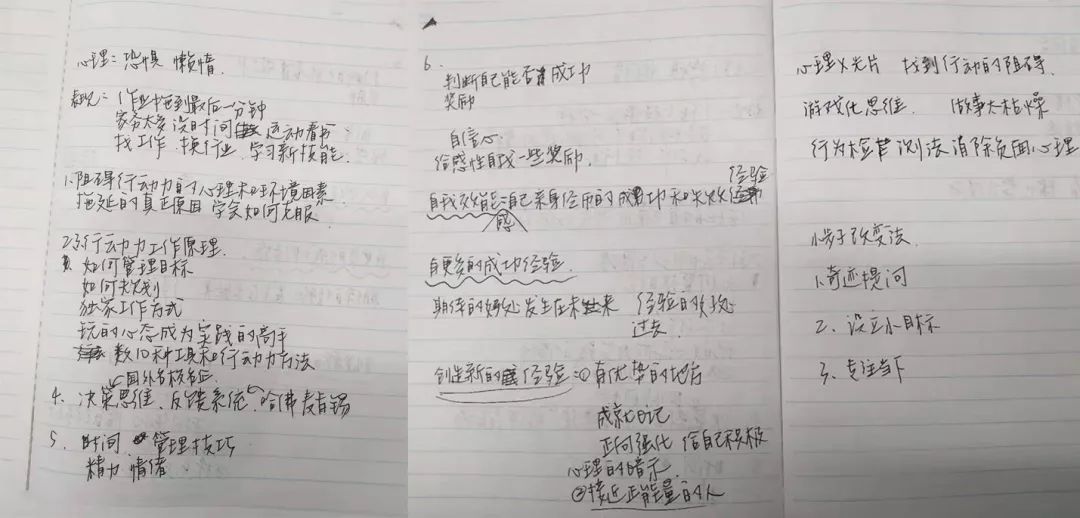 心理：恐惧 懒惰.
表现：1作业拖到最后一分钟
家务太多 没时间 运动看书
找工作 换行业 学习新技能.
1.阻碍行动力的心理和环境因素
拖延的真正原因 学会如何克服.
2.3行动力工作原理.
如何管理目标
如何计划
独家工作方式
玩的心态成为实践的高手
数10种工具和行动力方法
国外名校名企
4. 决策思维、反馈系统、哈佛麦肯锡
5. 时间. 管理技巧
精力 情绪
6.
判断自己能否成功
奖励
自信心.
给感性自我一些奖励.
经验
自我效能=自己亲身经历的成功和失败
感
自更多的成功经验.
期待的好处发生在未来 经验的
过去.
创造新的经验=①有优势的地方
成就日记
正向强化 给自己积极
心理的暗示.
②接近正能量的人
心理X光片 找到行动的阻碍.
游戏化思维 做事太枯燥
行为检 识法消除负面心理
小步子改变法.
1.奇迹提问
2. 设立小目标
3. 专注当下